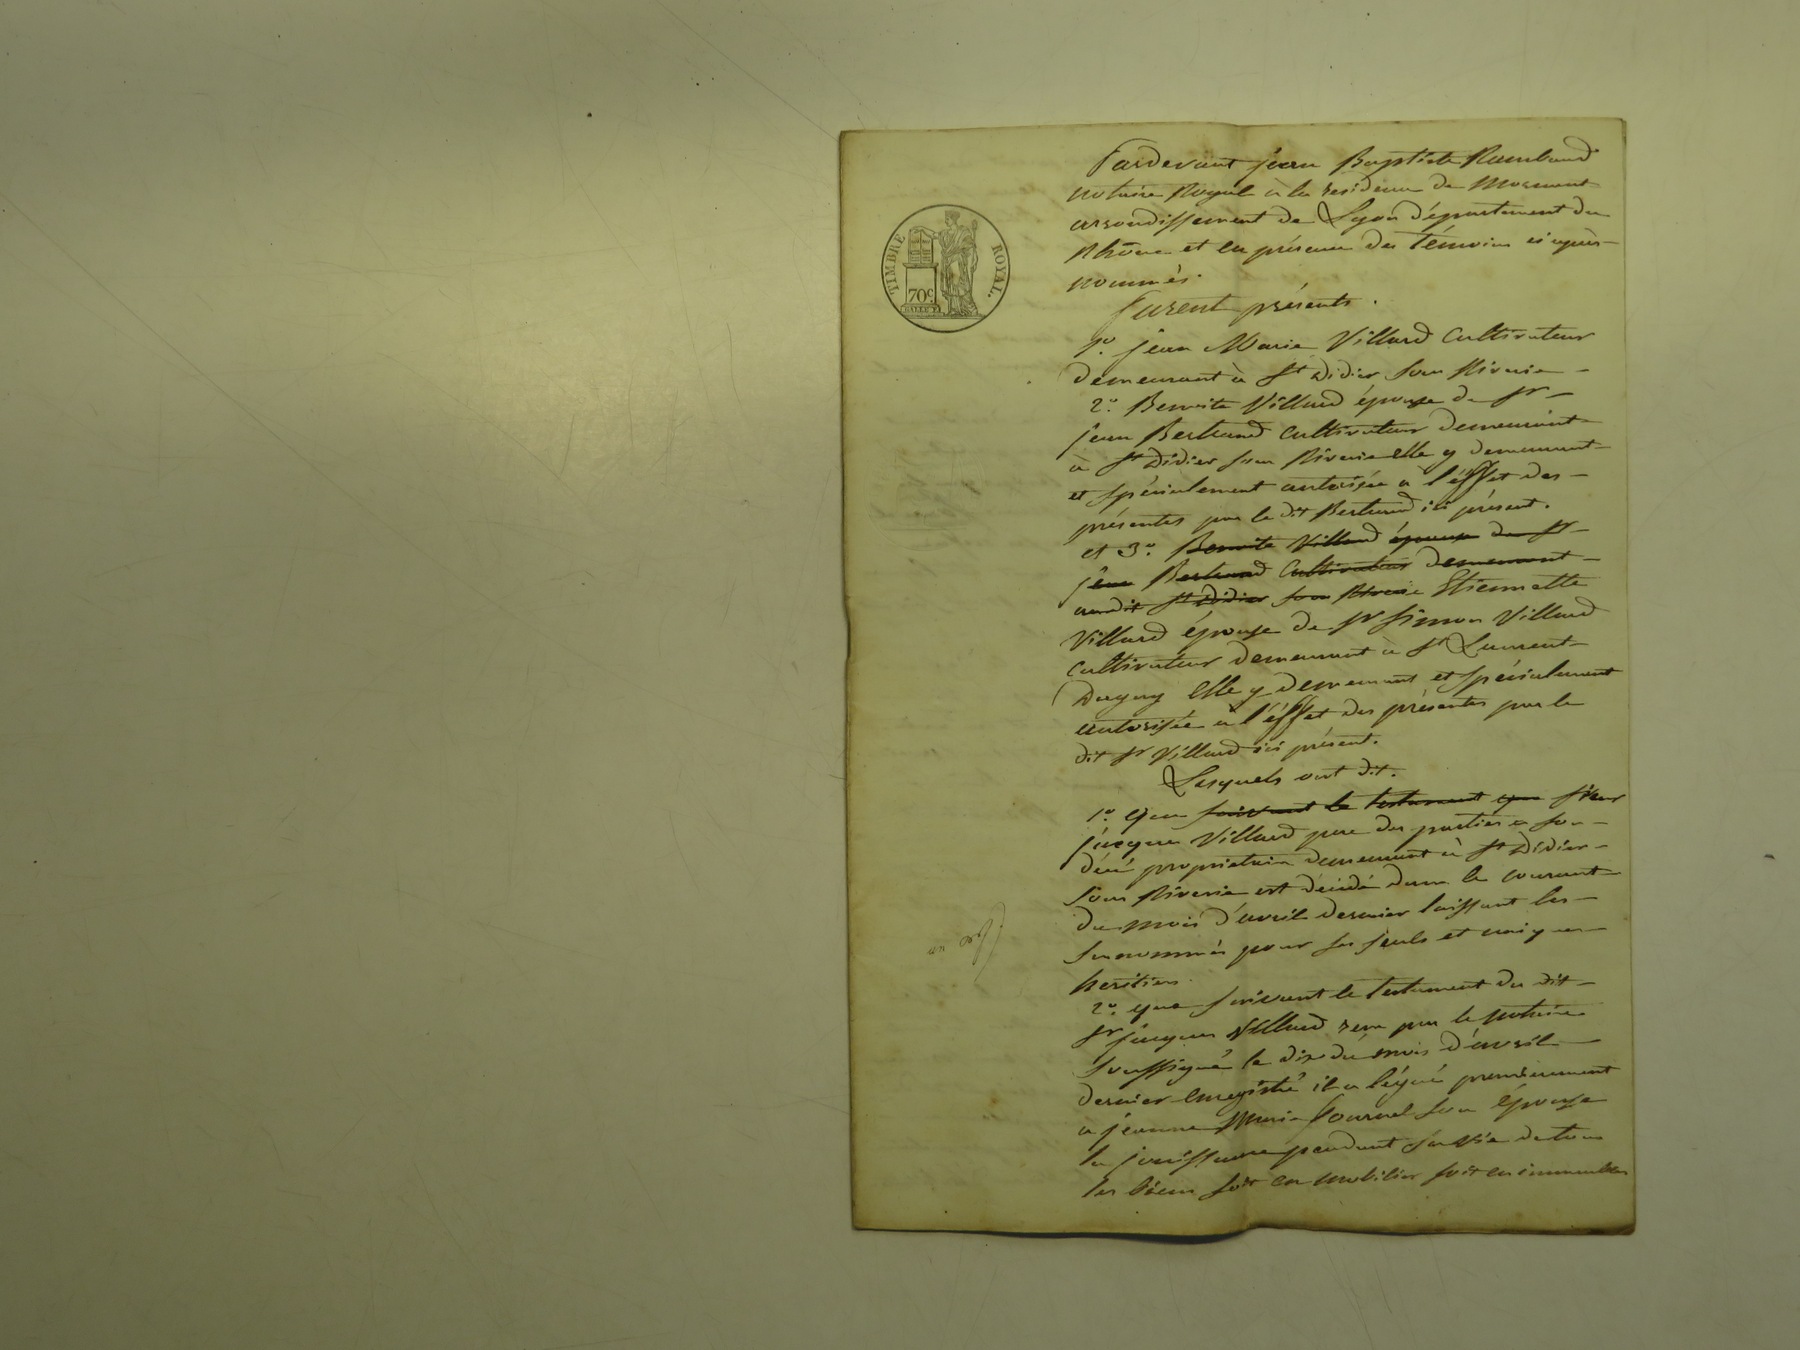 TIMBRE ROYAL.
70c
Pardevant jean Baptiste Rambaud
notaire Royal à la residence de Mornant
arrondissement de Lyon département du
Rhône et en présence des témoins ci après
nommés.
furent présents.
1o. jean Marie Villard Cultivateur
demeurant à St Didier sous Riverie
2o. Benoite Villard épouse de Sr
jean Bertrand Cultivateur demeurant
à St Didier sous Riverie elle y demeurant
et spécialement autorisée à l'éffet des
présentes par le dit Bertrand ici présent.
et 3o. Benoite Villard épouse de Sr
jean Bertrand Cultivateur demeurant
audit St Didier sous Riverie Etiennette
Villard épouse de Sr Simon Villard
Cultivateur demeurant à St Laurent
Dagny Elle y demeurant et spécialement
autorisée à l'éffet des présentes par le
dit Sr Villard ici présent.
Lesquels ont dit.
1o. que suivant le testament que sieur
jacques Villard pere des parties
propriétaire demeurant à St Didier
sous Riverie est décédé dans le courant
du mois d'avril dernier laissant les
susnommés pour ses seuls et uniques
heritiers.
2o. que suivant le testament du dit
Sr jacques Villard recu par le notaire
soussigné le dix du mois d'avril
dernier enregistré il a légué premièrement
a jeanne Marie son épouse
la jouissance pendant sa vie de tous
les biens soit en mobilier soit en immeubles